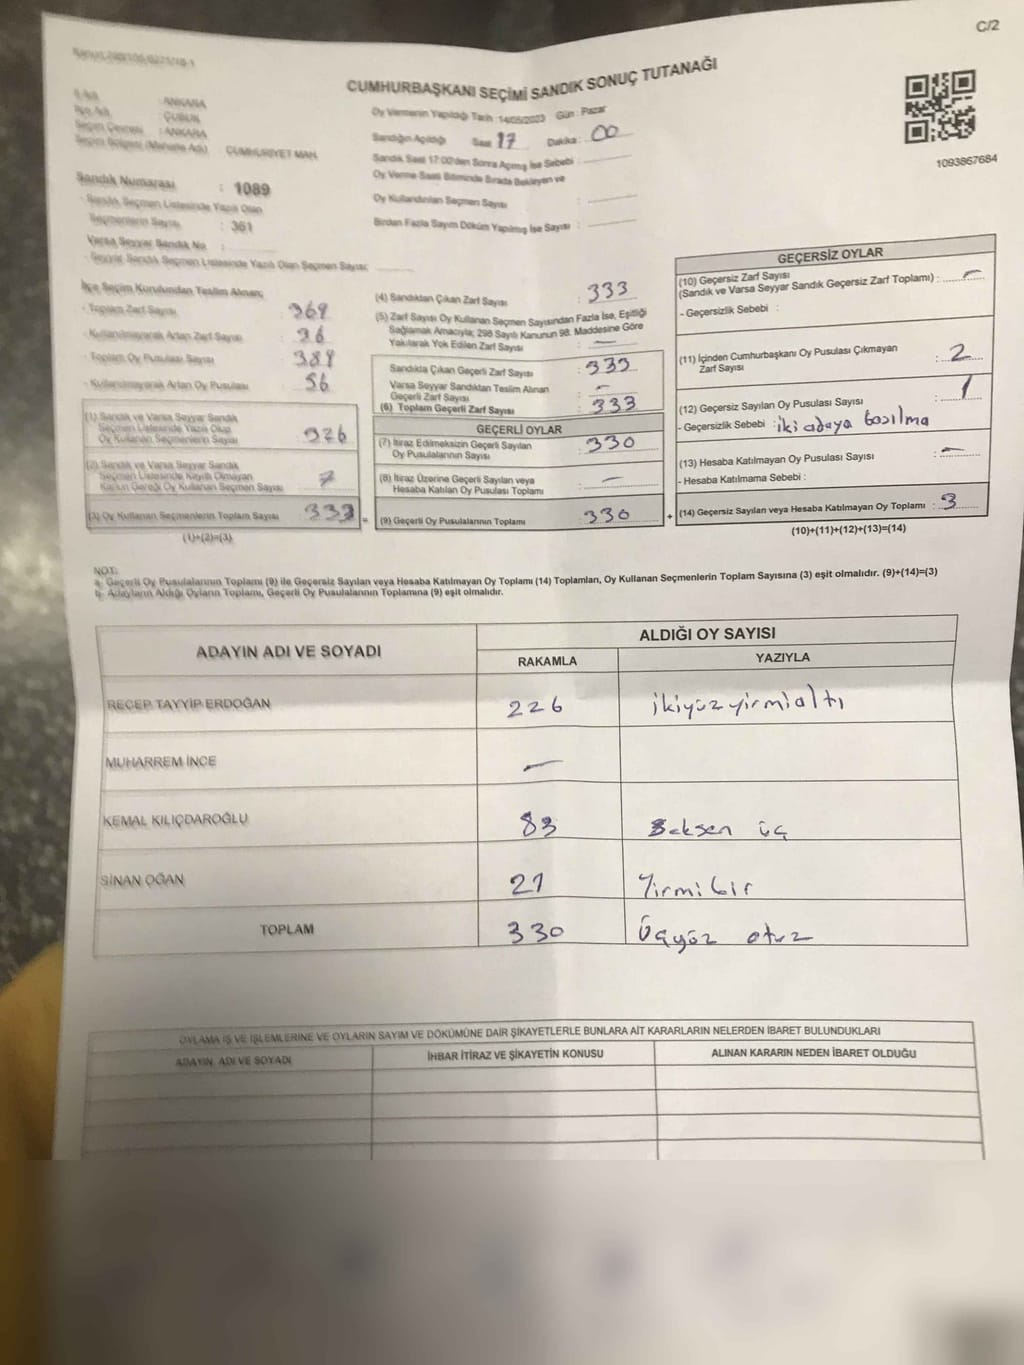 C/2
CUMHURBAŞKANI SEÇİMİ SANDIK SONUÇ TUTANAĞI
1093867684
İl Adı : ANKARA
İlçe Adı : ÇUBUK
Seçim Çevresi : ANKARA
Seçim Bölgesi (Mahalle Adı) : CUMHURİYET MAH.
Sandık Numarası : 1089
- Sandık Seçmen Listesinde Yazılı Olan
Seçmenlerin Sayısı : 361
Varsa Seyyar Sandık No :
- Seyyar Sandık Seçmen Listesinde Yazılı Olan Seçmen Sayısı:
Oy Vermenin Yapıldığı Tarih :14/05/2023 Gün : Pazar
Sandığın Açıldığı Saat : 17 Dakika : 00
Sandık Saat 17:00'den Sonra Açılmış İse Sebebi :
Oy Verme Saati Bitiminde Sırada Bekleyen ve
Oy Kullandırılan Seçmen Sayısı :
Birden Fazla Sayım Döküm Yapılmış İse Sayısı :
İlçe Seçim Kurulundan Teslim Alınan;
- Toplam Zarf Sayısı : 369
- Kullanılmayarak Artan Zarf Sayısı : 36
- Toplam Oy Pusulası Sayısı : 389
- Kullanılmayarak Artan Oy Pusulası : 56
(1) Sandık ve Varsa Seyyar Sandık
Seçmen Listesinde Yazılı Olup
Oy Kullanan Seçmenlerin Sayısı : 326
(2) Sandık ve Varsa Seyyar Sandık
Seçmen Listesinde Kayıtlı Olmayan
Kanun Gereği Oy Kullanan Seçmen Sayısı : 7
(3) Oy Kullanan Seçmenlerin Toplam Sayısı : 333 =
(1)+(2)=(3)
(4) Sandıktan Çıkan Zarf Sayısı : 333
(5) Zarf Sayısı Oy Kullanan Seçmen Sayısından Fazla İse, Eşitliği
Sağlamak Amacıyla; 298 Sayılı Kanunun 98. Maddesine Göre
Yakılarak Yok Edilen Zarf Sayısı : —
Sandıkta Çıkan Geçerli Zarf Sayısı : 333
Varsa Seyyar Sandıktan Teslim Alınan
Geçerli Zarf Sayısı : —
(6) Toplam Geçerli Zarf Sayısı : 333
GEÇERLİ OYLAR
(7) İtiraz Edilmeksizin Geçerli Sayılan : 330
Oy Pusulalarının Sayısı
(8) İtiraz Üzerine Geçerli Sayılan veya : —
Hesaba Katılan Oy Pusulası Toplamı
(9) Geçerli Oy Pusulalarının Toplamı : 330 +
GEÇERSİZ OYLAR
(10) Geçersiz Zarf Sayısı
(Sandık ve Varsa Seyyar Sandık Geçersiz Zarf Toplamı) : —
- Geçersizlik Sebebi :
(11) İçinden Cumhurbaşkanı Oy Pusulası Çıkmayan : 2
Zarf Sayısı
(12) Geçersiz Sayılan Oy Pusulası Sayısı : 1
- Geçersizlik Sebebi : iki adaya basılma
(13) Hesaba Katılmayan Oy Pusulası Sayısı : —
- Hesaba Katılmama Sebebi :
(14) Geçersiz Sayılan veya Hesaba Katılmayan Oy Toplamı : 3
(10)+(11)+(12)+(13)=(14)
NOT:
a- Geçerli Oy Pusulalarının Toplamı (9) ile Geçersiz Sayılan veya Hesaba Katılmayan Oy Toplamı (14) Toplamları, Oy Kullanan Seçmenlerin Toplam Sayısına (3) eşit olmalıdır. (9)+(14)=(3)
b- Adayların Aldığı Oyların Toplamı, Geçerli Oy Pusulalarının Toplamına (9) eşit olmalıdır.
ADAYIN ADI VE SOYADI ALDIĞI OY SAYISI
RAKAMLA YAZIYLA
RECEP TAYYİP ERDOĞAN 226 ikiyüzyirmialtı
MUHARREM İNCE —
KEMAL KILIÇDAROĞLU 83 Seksen üç
SİNAN OĞAN 21 Yirmibir
TOPLAM 330 Üçyüz otuz
OYLAMA İŞ VE İŞLEMLERİNE VE OYLARIN SAYIM VE DÖKÜMÜNE DAİR ŞİKAYETLERLE BUNLARA AİT KARARLARIN NELERDEN İBARET BULUNDUKLARI
ADAYIN ADI VE SOYADI İHBAR İTİRAZ VE ŞİKAYETİN KONUSU ALINAN KARARIN NEDEN İBARET OLDUĞU